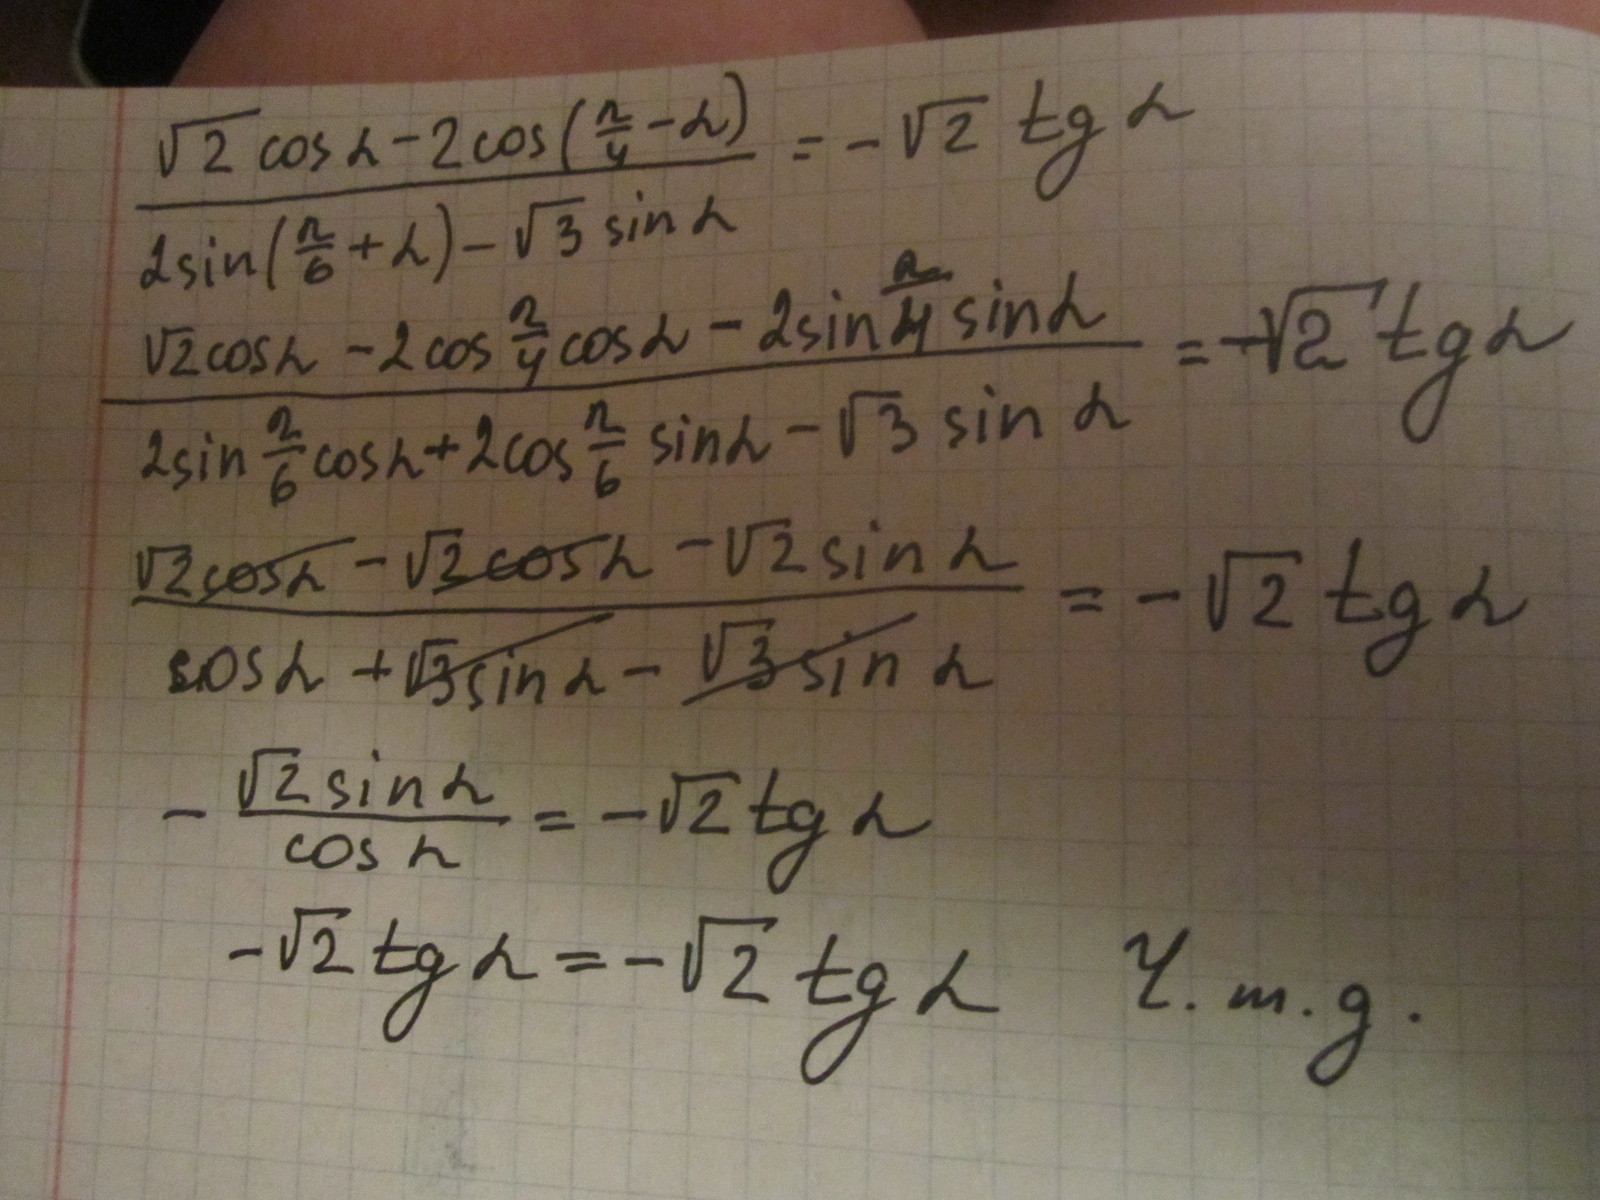 (√2 cos α - 2 cos(π/4 - α)) / (2 sin(π/6 + α) - √3 sin α) = - √2 tg α
(√2 cos α - 2 cos π/4 cos α - 2 sin π/4 sin α) / (2 sin π/6 cos α + 2 cos π/6 sin α - √3 sin α) = -√2 tg α
(√2 cos α - √2 cos α - √2 sin α) / (cos α + √3 sin α - √3 sin α) = - √2 tg α
- (√2 sin α) / (cos α) = - √2 tg α
- √2 tg α = - √2 tg α Ч.т.д.